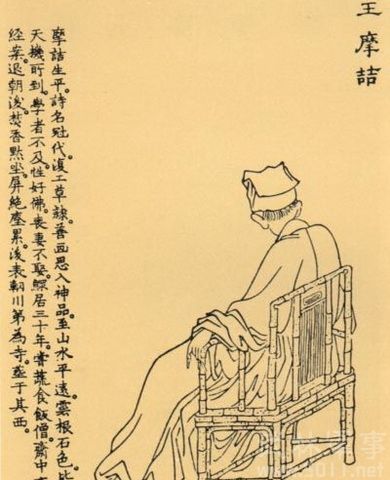 王摩詰
摩詰生平。詩名冠代。復工草隸。善画。思入神品。至山水平遠。雲根石色。
天機所到。學者不及。性好佛。喪妻不娶。鰥居三十年。嘗蔬食飯僧。齋中
經案。退朝後。焚香黙坐。屏絕塵累。後表輞川第為寺。塟于其西。
5011.net